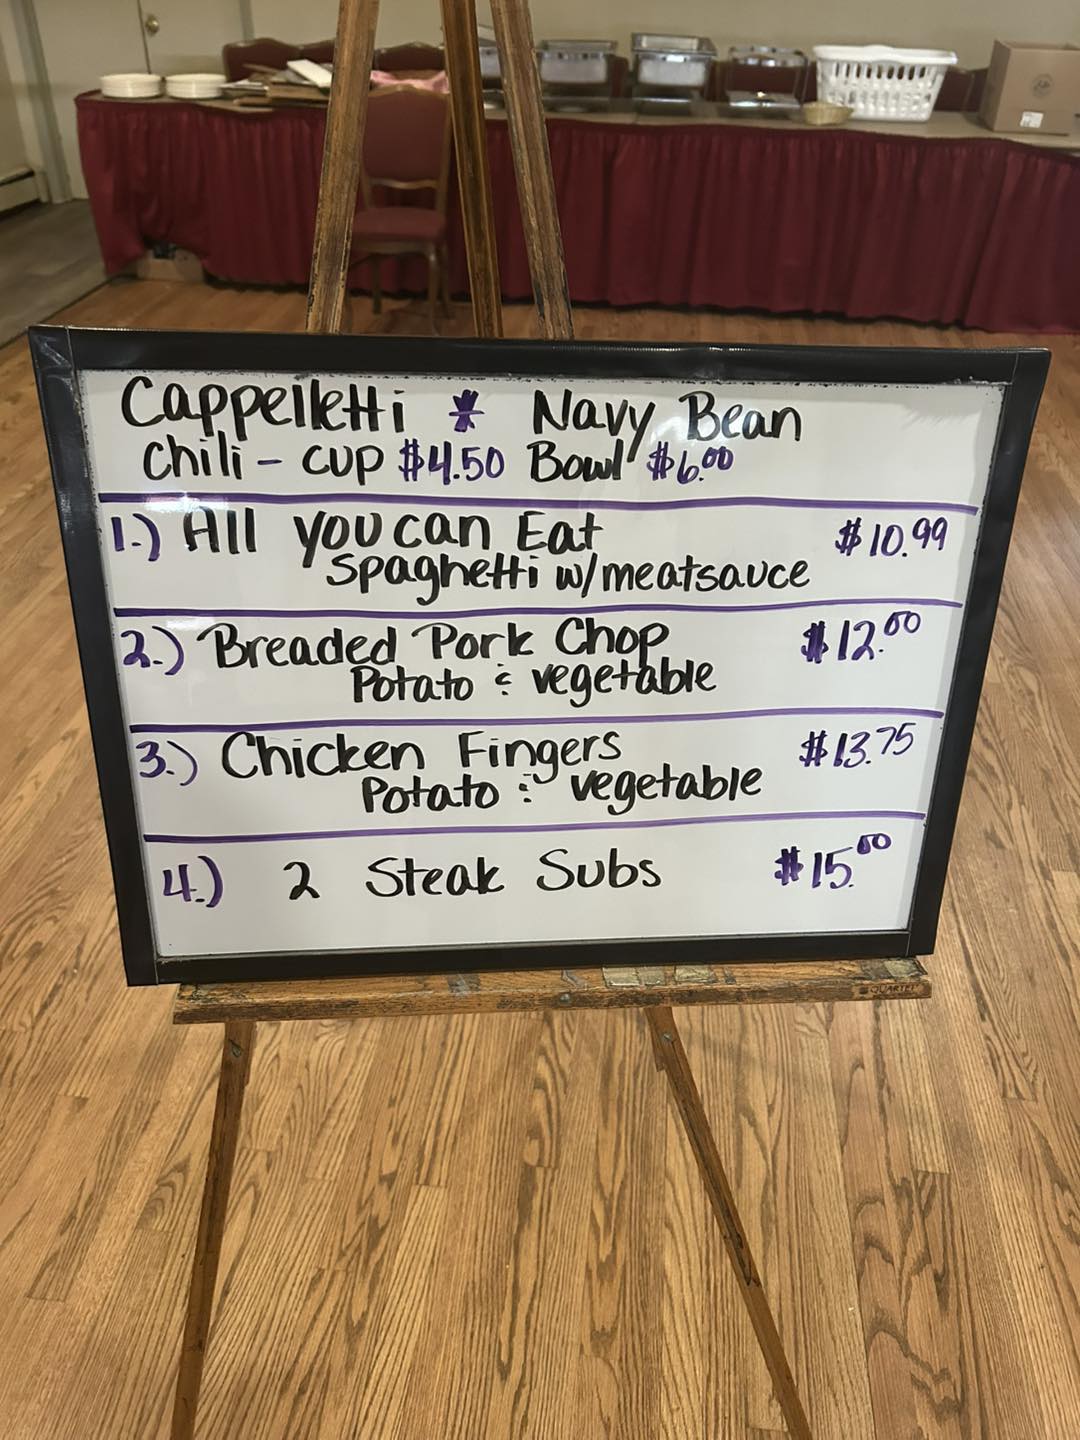 Cappelletti * Navy Bean
Chili - cup $4.50 Bowl $6.00
1.) All you can Eat $10.99
Spaghetti w/meatsauce
2.) Breaded Pork Chop $12.00
Potato & vegetable
3.) Chicken Fingers $13.75
Potato & vegetable
4.) 2 Steak Subs $15.00
QUARTET